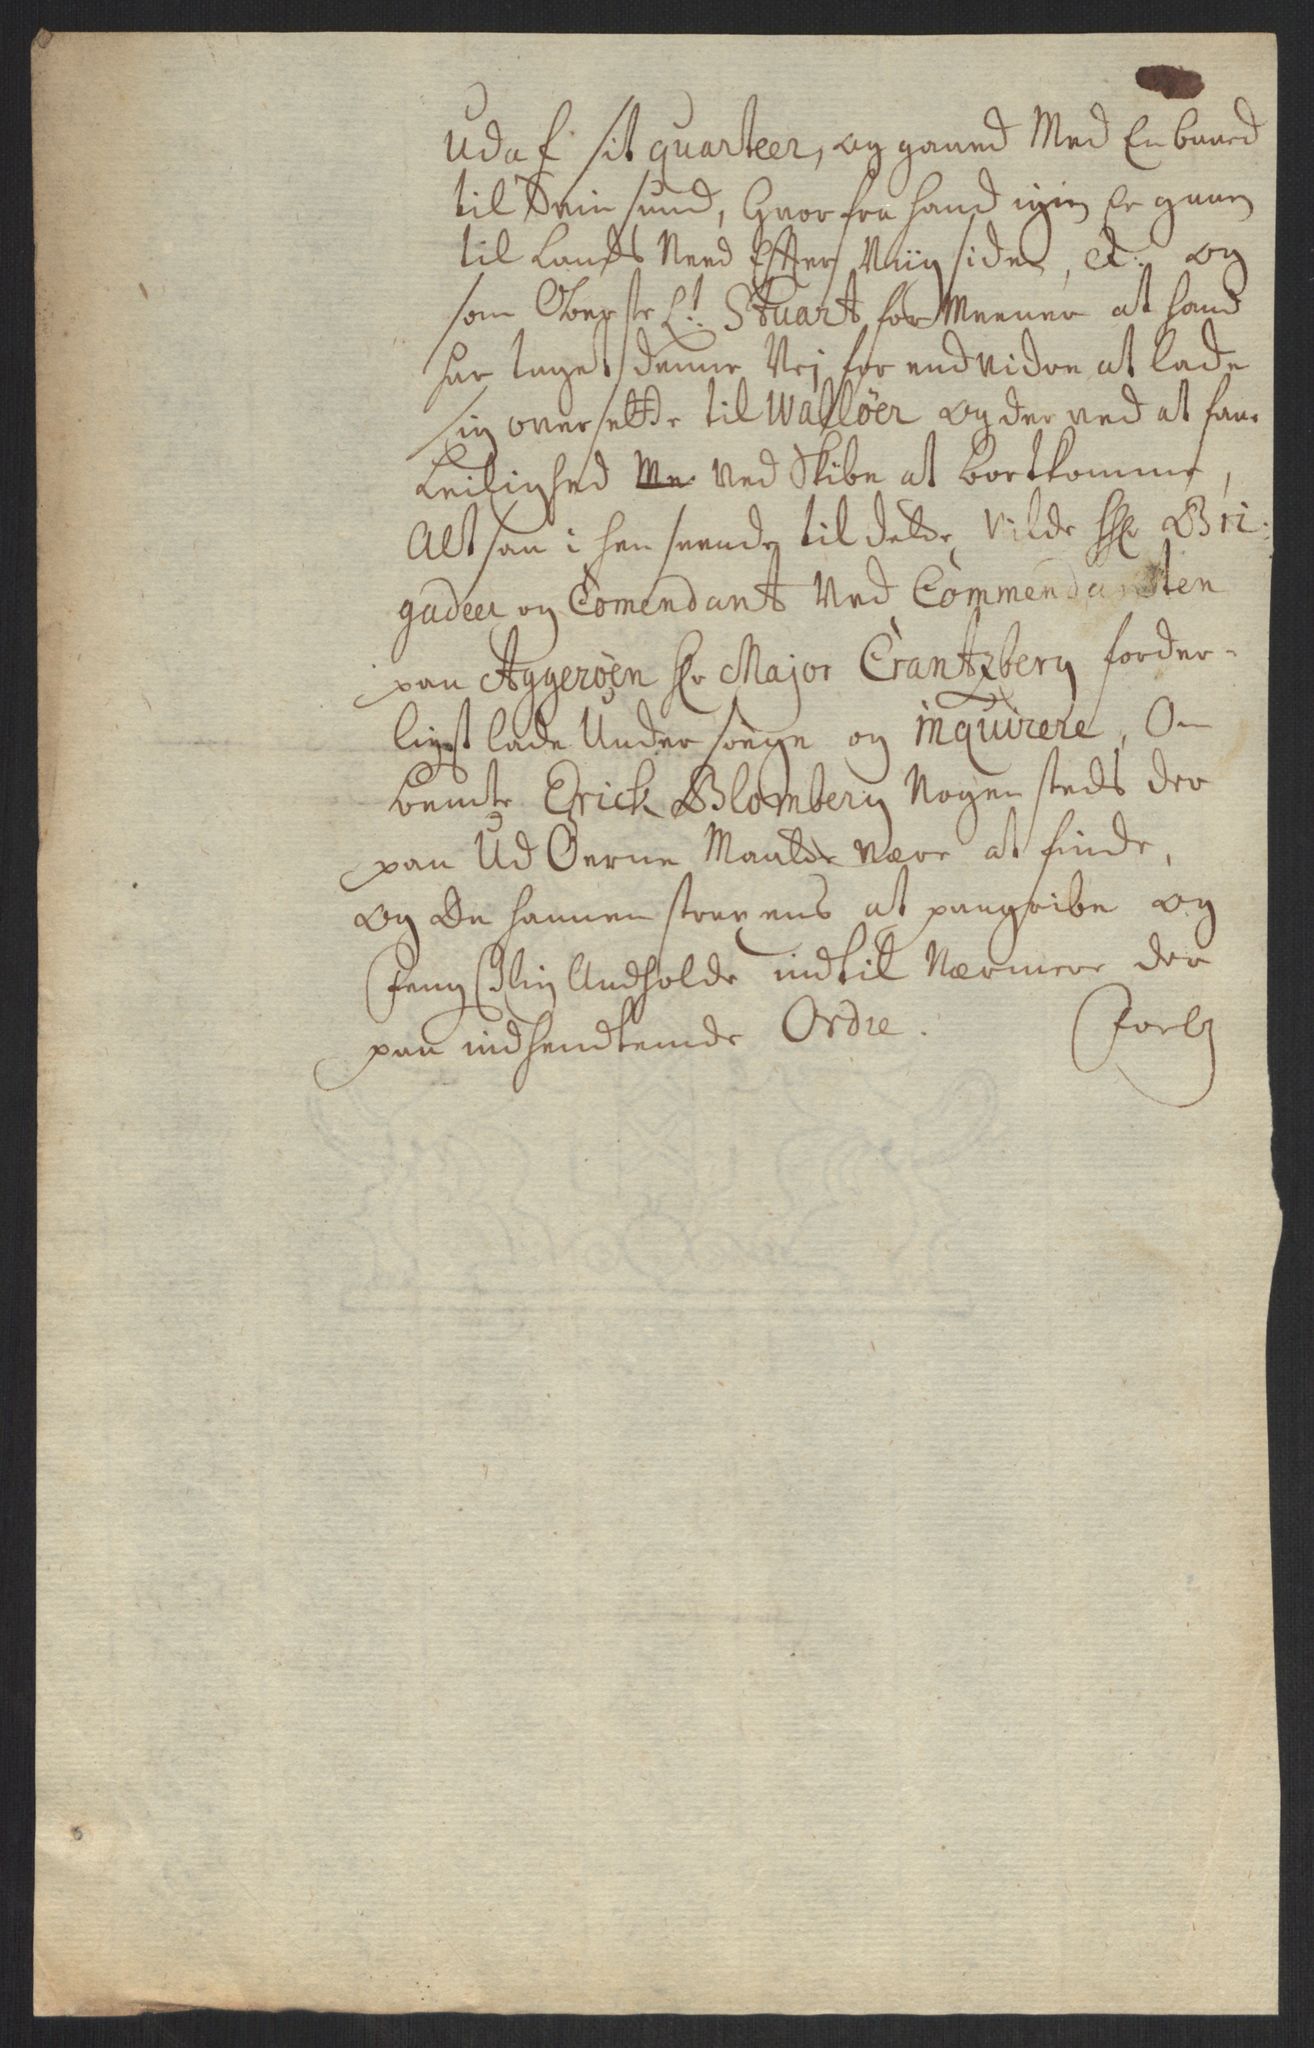 Udaf sit quarteer, og gaaed Med En baad
til Svinsund, Hvor fra hand igien Er gaaen
til Lands Need Efter Viigsiden, et: og
som Oberste Lt: Stuart for Meener at hand
har taget denne Vej for endvidre at lade
sig oversette til Walløer og der ved at faae
Leilighed Me ved Skibe at bortkomme,
Alt saa i henseende til dette, Vilde Hr Bri:
gadeer og Comendant Ved Commendanten
paa Aggerøen Hr Major Crantzberg forder-
ligst lade Undersøege og inquirere, Om
bemte Erick Blomberg Nogen steds der
paa Ud Øerne Maatte være at finde,
og Da hannem strax ens at paagribe og
Feng Slig Andholde indtil Nærmere der
paa indhendtende Ordre. Forbl